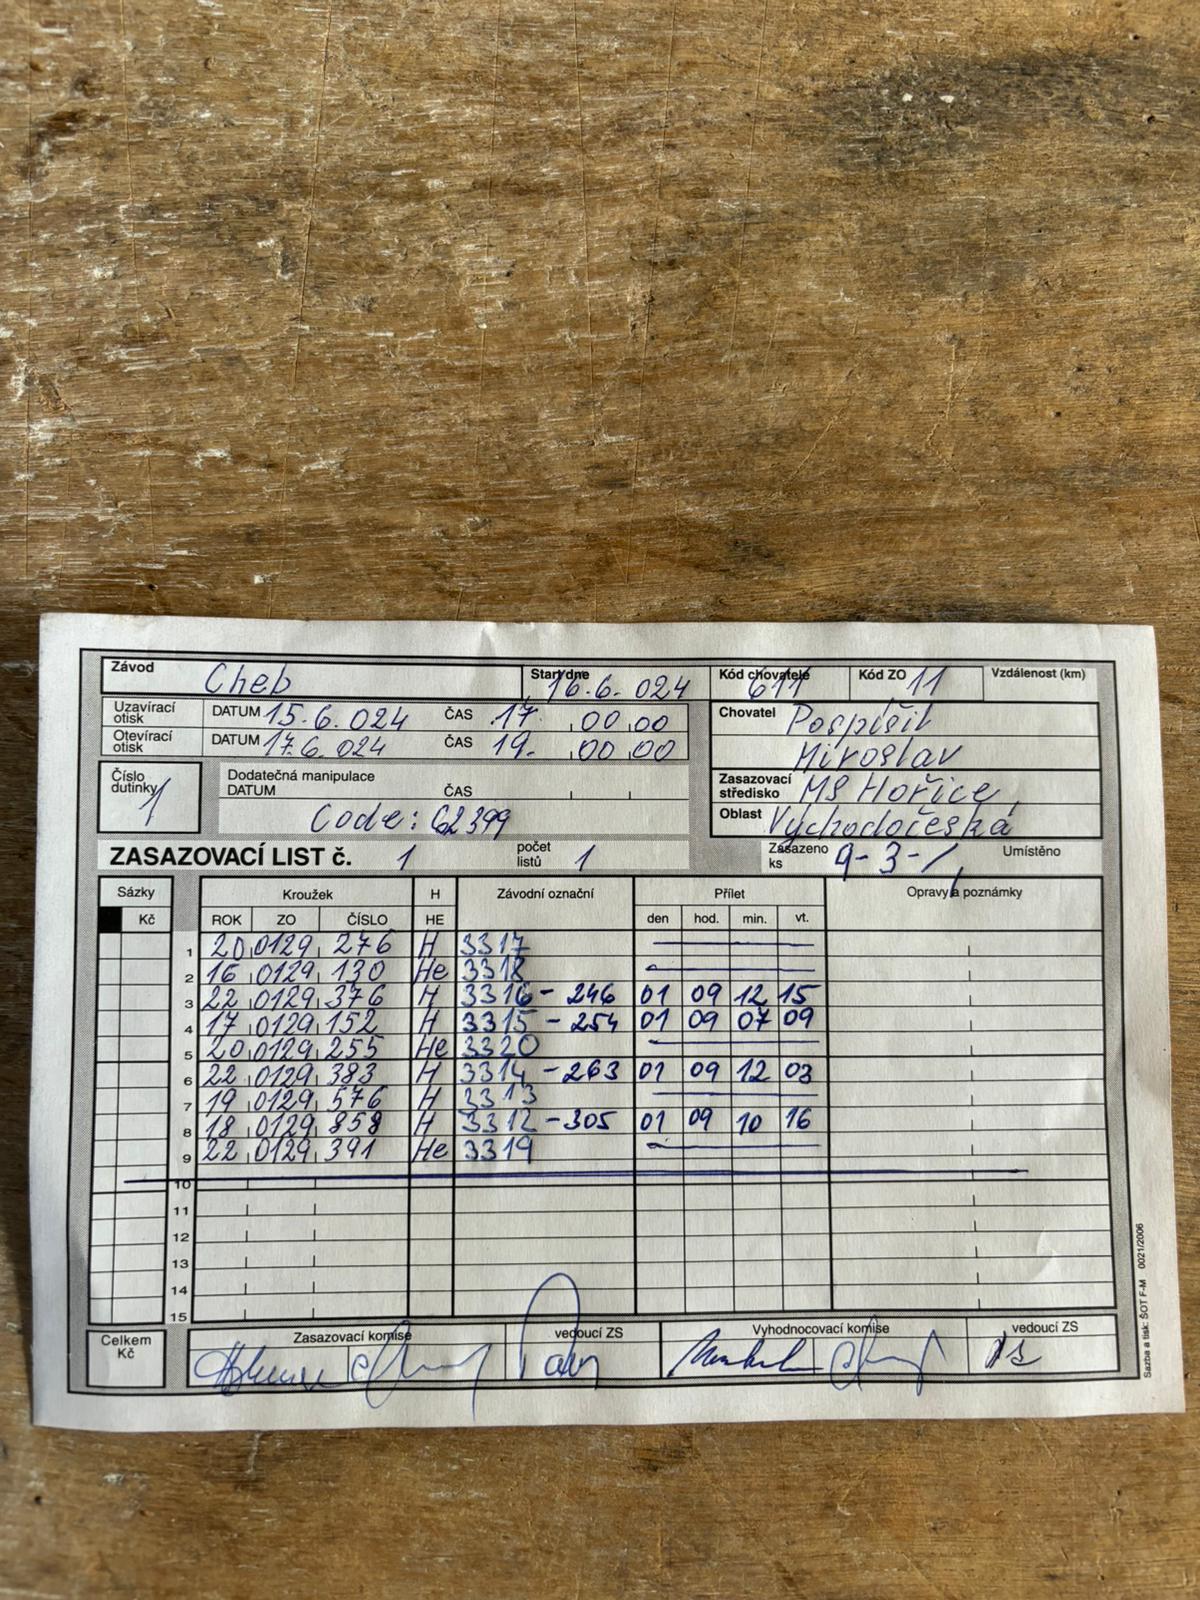 Závod Cheb Start dne 16.6. 024 Kód chovatele 611 Kód ZO 11 Vzdálenost (km)
Uzavírací otisk DATUM 15.6.024 ČAS 17. 00 00
Otevírací otisk DATUM 17.6.024 ČAS 19. 00 00
Chovatel Pospíšil
Miroslav
Číslo dutinky 1
Dodatečná manipulace
DATUM ČAS
Code: 62399
Zasazovací středisko MS Hořice
Oblast Východočeská
ZASAZOVACÍ LIST č. 1 počet listů 1 Zasazeno ks 9-3-1 Umístěno
Sázky Kroužek H Závodní označní Přílet Opravy a poznámky
Kč ROK ZO ČÍSLO HE den hod. min. vt.
1 20 0129 276 H 3317
2 16 0129 130 He 3318
3 22 0129 376 H 3316 - 246 01 09 12 15
4 17 0129 152 H 3315 - 254 01 09 07 09
5 20 0129 255 He 3320
6 22 0129 383 H 3314 - 263 01 09 12 03
7 19 0129 576 H 3313
8 18 0129 858 H 3312 - 305 01 09 10 16
9 22 0129 391 He 3319
10
11
12
13
14
15
Celkem Kč Zasazovací komise vedoucí ZS Vyhodnocovací komise vedoucí ZS
Sazba a tisk: ŠOT F-M 0021/2006